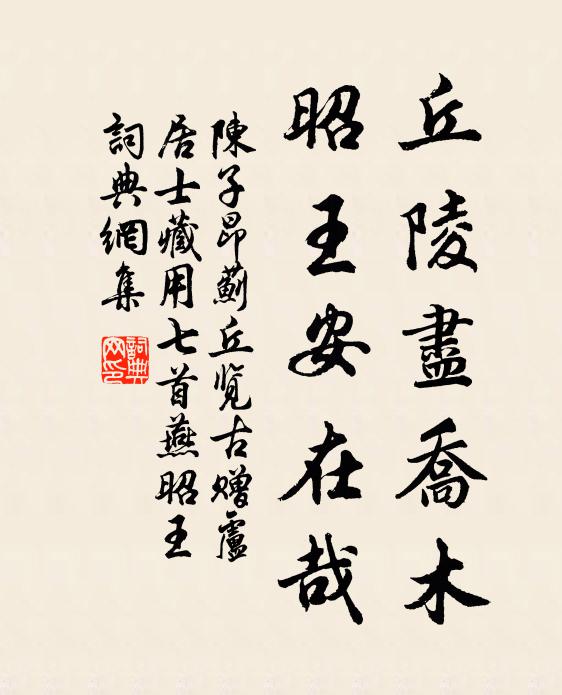 丘陵盡喬木
昭王安在哉
陳子昂薊丘覧古赠盧
居士藏用七首燕昭王
詞典網集
詞典
网印